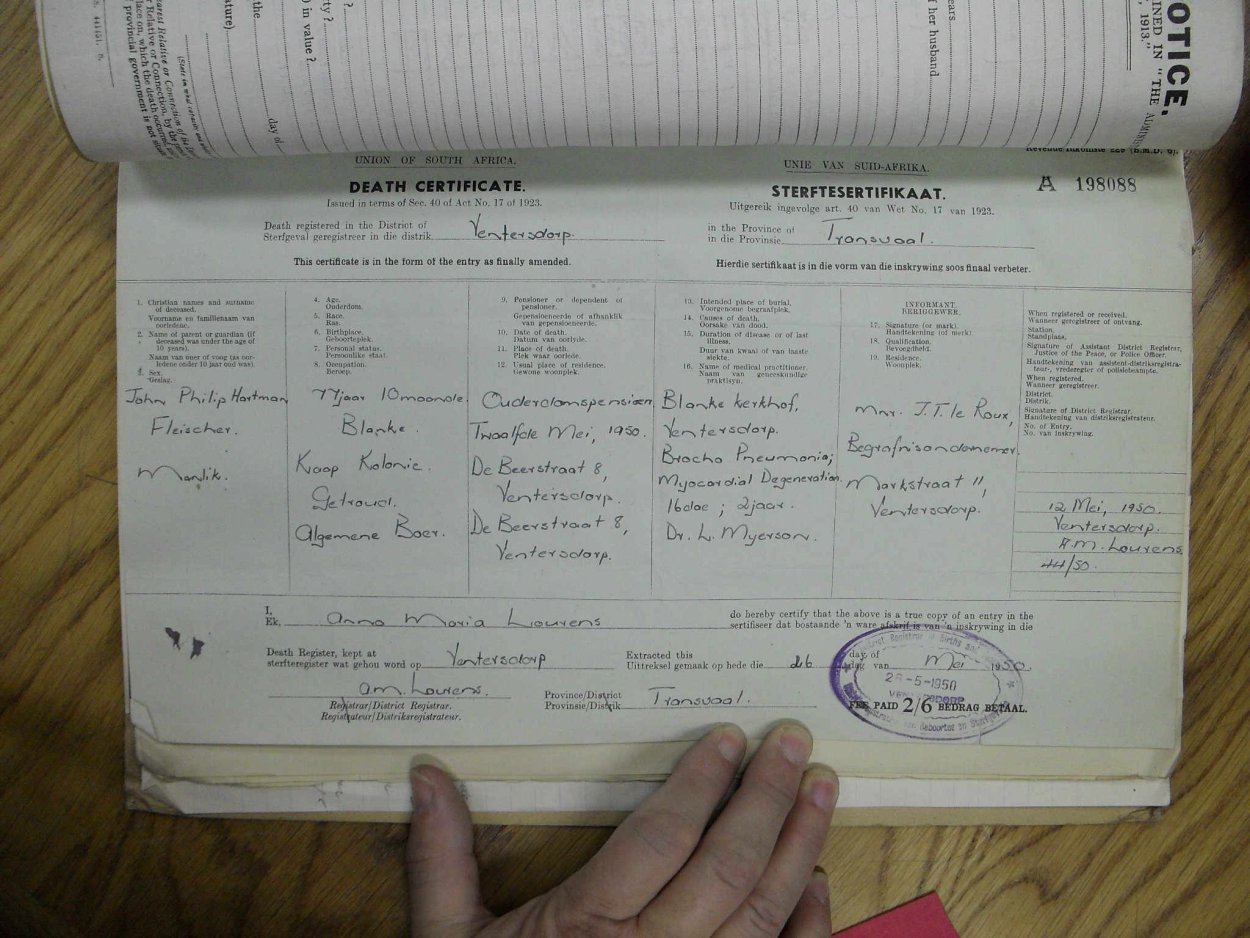 OTICE.
INED IN "THE
, 1913."
of her husband
ears
in value ?
rty ?
?
the
ature)
day of
UNION OF SOUTH AFRICA.
UNIE VAN SUID-AFRIKA.
DEATH CERTIFICATE.
STERFTESERTIFIKAAT.
A 198088
Issued in terms of Sec. 40 of Act No. 17 of 1923.
Uitgereik ingevolge art. 40 van Wet No. 17 van 1923.
Death registered in the District of
Sterfgeval geregistreer in die distrik Ventersdorp.
in the Province of
in die Provinsie Transvaal.
This certificate is in the form of the entry as finally amended.
Hierdie sertifikaat is in die vorm van die inskrywing soos finaal verbeter.
1. Christian names and surname
of deceased.
Voorname en familienaam van
oorledene.
2. Name of parent or guardian (if
deceased was under the age of
10 years).
Naam van ouer of voog (as oor-
ledene onder 10 jaar oud was).
3. Sex.
Geslag.
John Philip Hartman
Fleischer.
Manlik.
4. Age.
Ouderdom.
5. Race.
Ras.
6. Birthplace.
Geboorteplek.
7. Personal status.
Persoonlike staat.
8. Occupation.
Beroep.
77 jaar 10 maande.
Blanke.
Kaap Kolonie.
Getroud.
Algemene Boer.
9. Pensioner or dependent of
pensioner.
Gepensioeneerde of afhanklik
van gepensioeneerde.
10. Date of death.
Datum van oorlyde.
11. Place of death.
Plek waar oorlede.
12. Usual place of residence.
Gewone woonplek.
Ouderdomspensioen
Twaalfde Mei, 1950.
De Beerstraat 8,
Ventersdorp.
De Beerstraat 8,
Ventersdorp.
13. Intended place of burial.
Voorgenome begraafplek.
14. Causes of death.
Oorsake van dood.
15. Duration of disease or of last
illness.
Duur van kwaal of van laaste
siekte.
16. Name of medical practitioner.
Naam van geneeskundige
praktisyn.
Blanke Kerkhof,
Ventersdorp.
Brocho Pneumonia;
Myocardial Degeneration.
16 dae ; 2 jaar.
Dr. L. Myerson.
INFORMANT.
BERIGGEWER.
17. Signature (or mark).
Handtekening (of merk).
18. Qualification.
Bevoegdheid.
19. Residence.
Woonplek.
Mnr. J.T. le Roux,
Begrafnisondernemer.
Markstraat 11,
Ventersdorp.
When registered or received.
Wanneer geregistreer of ontvang.
Station.
Standplaas.
Signature of Assistant District Registrar,
Justice of the Peace, or Police Officer.
Handtekening van assistent-distriksregistra-
teur, vrederegter of polisiebeampte.
When registered.
Wanneer geregistreer.
District.
Distrik.
Signature of District Registrar.
Handtekening van distriksregistrateur.
No. of Entry.
No. van inskrywing.
12 Mei, 1950.
Ventersdorp.
A.M. Lourens
44/50.
I,
Ek, Anna Maria Lourens
do hereby certify that the above is a true copy of an entry in the
sertifiseer dat bostaande 'n ware afskrif is van 'n inskrywing in die
Death Register, kept at
sterfteregister wat gehou word op Ventersdorp
Extracted this
Uittreksel gemaak op hede die 26
day of
dag van Mei 1950.
26-5-1950
VENTERSDORP
A.M. Lourens.
Registrar/District Registrar.
Registrateur/Distriksregistrateur.
Province/District
Provinsie/Distrik Transvaal.
FEE PAID 2/6 BEDRAG BETAAL.